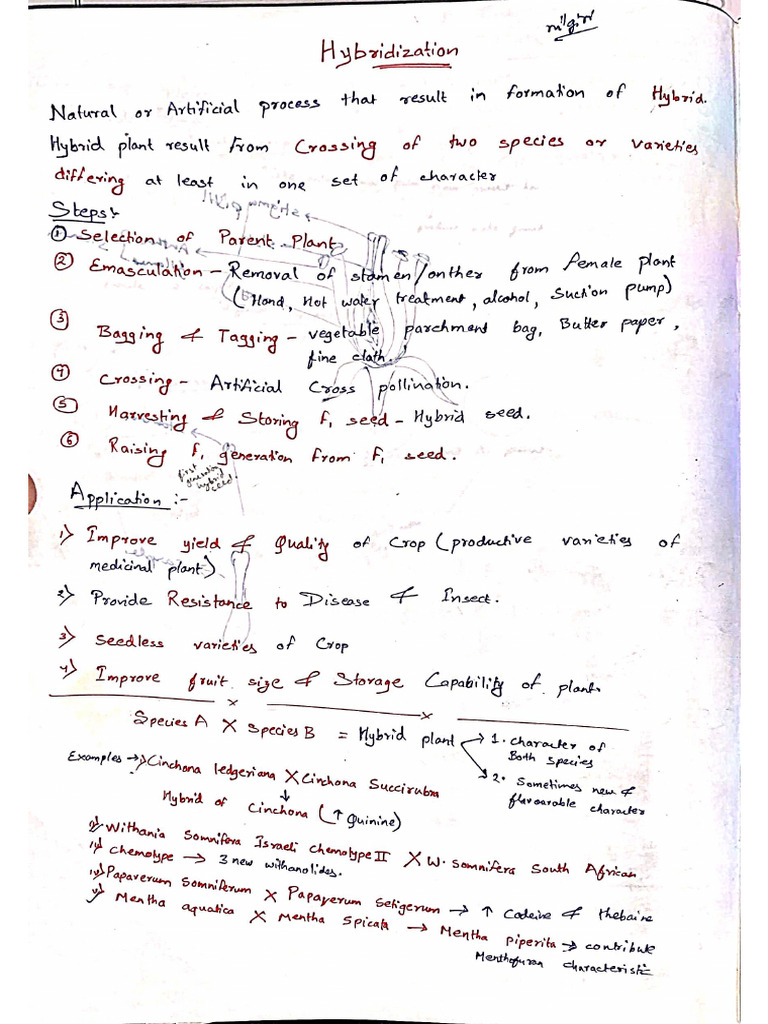 Hybridization
Natural or Artificial process that result in formation of Hybrid.
Hybrid plant result from Crossing of two species or varieties
differing at least in one set of character
Steps:-
① Selection of Parent Plant
② Emasculation - Removal of stamen/onther from female plant
(Hand, Hot water treatment, alcohol, Suction pump)
③ Bagging & Tagging - vegetable parchment bag, Butter paper,
fine cloth.
④ Crossing - Artificial Cross pollination.
⑤ Harvesting & Storing F₁ seed - Hybrid seed.
⑥ Raising F₁ generation from F₁ seed.
first
generation
hybrid
seed.
Application :-
1) Improve yield & Quality of Crop (productive varieties of
medicinal plant)
2) Provide Resistance to Disease & Insect.
3) Seedless varieties of Crop
4) Improve fruit size & Storage Capability of plant.
x x
Species A X Species B = Hybrid plant → 1. Character of
Both species
2. Sometimes new &
flavourable character
Examples → i) Cinchona ledgeriana X Cinchona Succirubra
↓
Hybrid of Cinchona (↑ Quinine)
Withania Somnifera Israeli Chemotype II X W. Somnifera South African
Chemotype → 3 new withanolides.
Papaverum Somniferum X Papayerum Setigerum → ↑ Codeine & thebaine
Mentha aquatica X Mentha Spicata → Mentha Piperita → contribute
Menthofuran characteristic